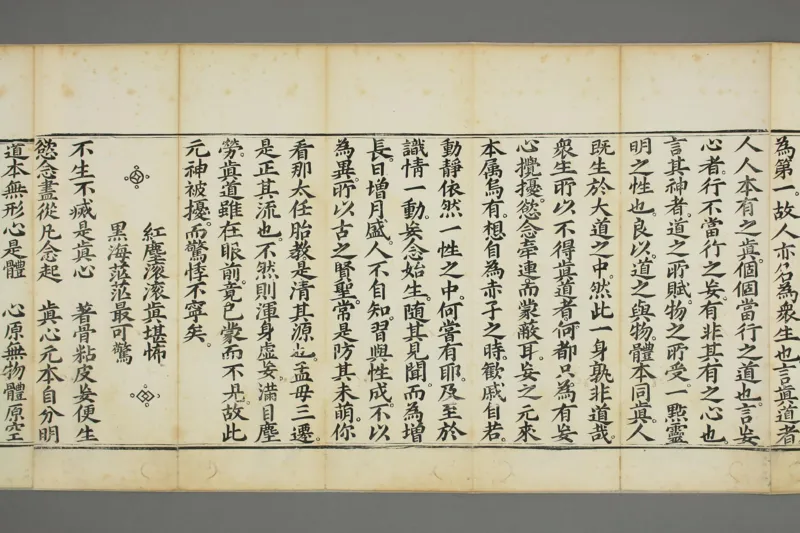 為第一。故人亦名為衆生也。言眞道者
人人本有之眞。個個當行之道也。言妄
心者。行不當行之妄。有非其有之心也。
言其神者。道之所賦。物之所受。一點靈
明之性也。良以道之與物。體本同眞。人
既生於大道之中。然此一身孰非道哉。
衆生所以不得眞道者何。都只為有妄
心攪擾。慾念牽連。而蒙蔽耳。妄之元來
本属烏有。想自為赤子之時。歡戚自若。
動靜依然一性之中。何嘗有耶。及至於
識情一動。妄念始生。随其見聞。而為增
長。日增月盛。人不自知。習與性成。不以
為異。所以古之賢聖。常是防其未萌。你
看那太任胎教。是清其源也。孟母三遷。
是正其流也。不然則渾身虚妄。滿目塵
勞。眞道雖在眼前。竟已蒙而不見。故此
元神被擾。而驚悸不寧矣。
紅塵滚滚眞堪怖
黒海茫茫最可驚
不生不滅是眞心 著骨粘皮妄便生
慾念盡從凡念起 眞心元本自分明
道本無形心是體 心原無物體原空